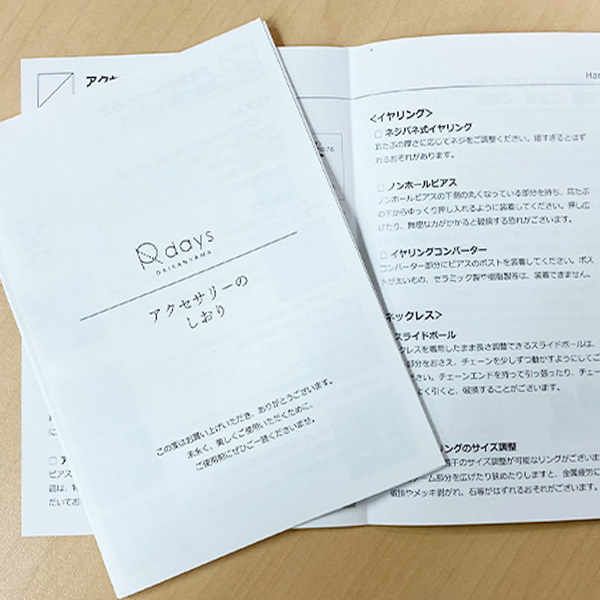 days
DAIKANYAMA
アクセサリーの
しおり
この度はお買い上げいただき、ありがとうございます。
末永く、美しくご使用いただくために、
ご使用前にぜひご一読くださいませ。
アクセ
Har
<イヤリング>
□ ネジバネ式イヤリング
耳たぶの厚さに応じてネジをご調整ください。緩すぎるとはず
れるおそれがあります。
□ ノンホールピアス
ノンホールピアスの下側の丸くなっている部分を持ち、耳たぶ
の下からゆっくり押し入れるように装着してください。押し広
げたり、無理な力がかかると破損する恐れがございます。
□ イヤリングコンバーター
コンバーター部分にピアスのポストを装着してください。ポス
トが太いもの、セラミック製や樹脂製等は、装着できません。
ネックレス>
スライドボール
クレスを着用したまま長さ調整できるスライドボールは、
部分をおさえ、チェーンを少しずつ動かすようにしてご
さい。チェーンエンドを持って引っ張ったり、チェー
よく引くと、破損することがございます。
ングのサイズ調整
干のサイズ調整が可能なリングがございま
ーム部分を広げたり狭めたりしますと、金属疲労に
破損やメッキ剥がれ、石等がはずれるおそれがございます。
□ ア
ピアス
品は、特
だいてお